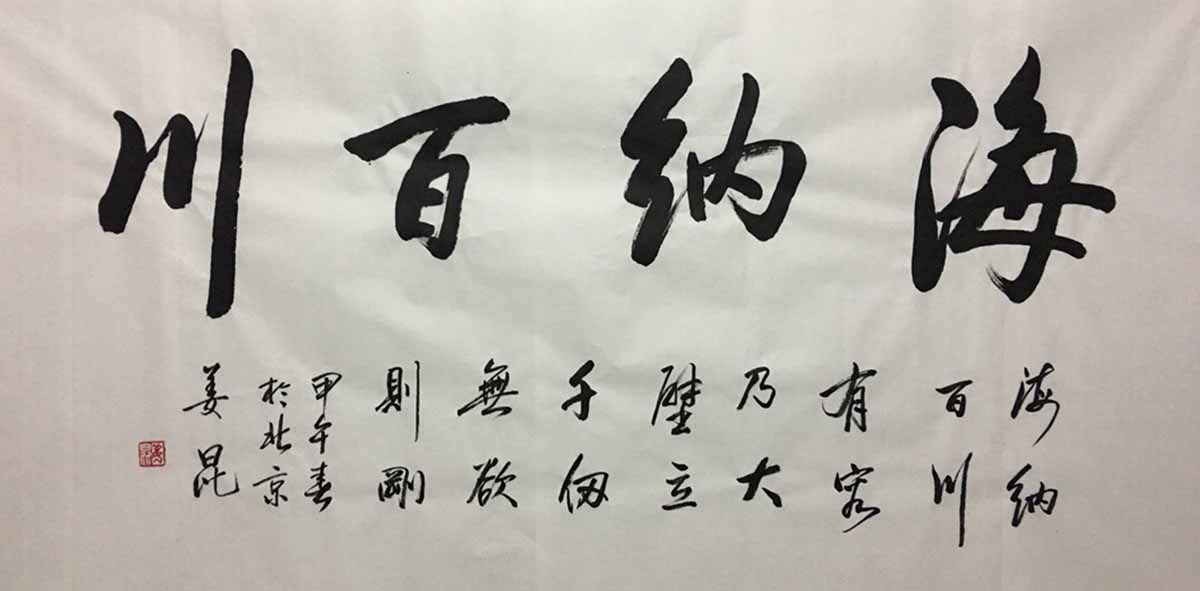 海纳百川
海纳
百川
有容
乃大
壁立
千仞
無欲
則剛
甲午春
於北京
姜昆